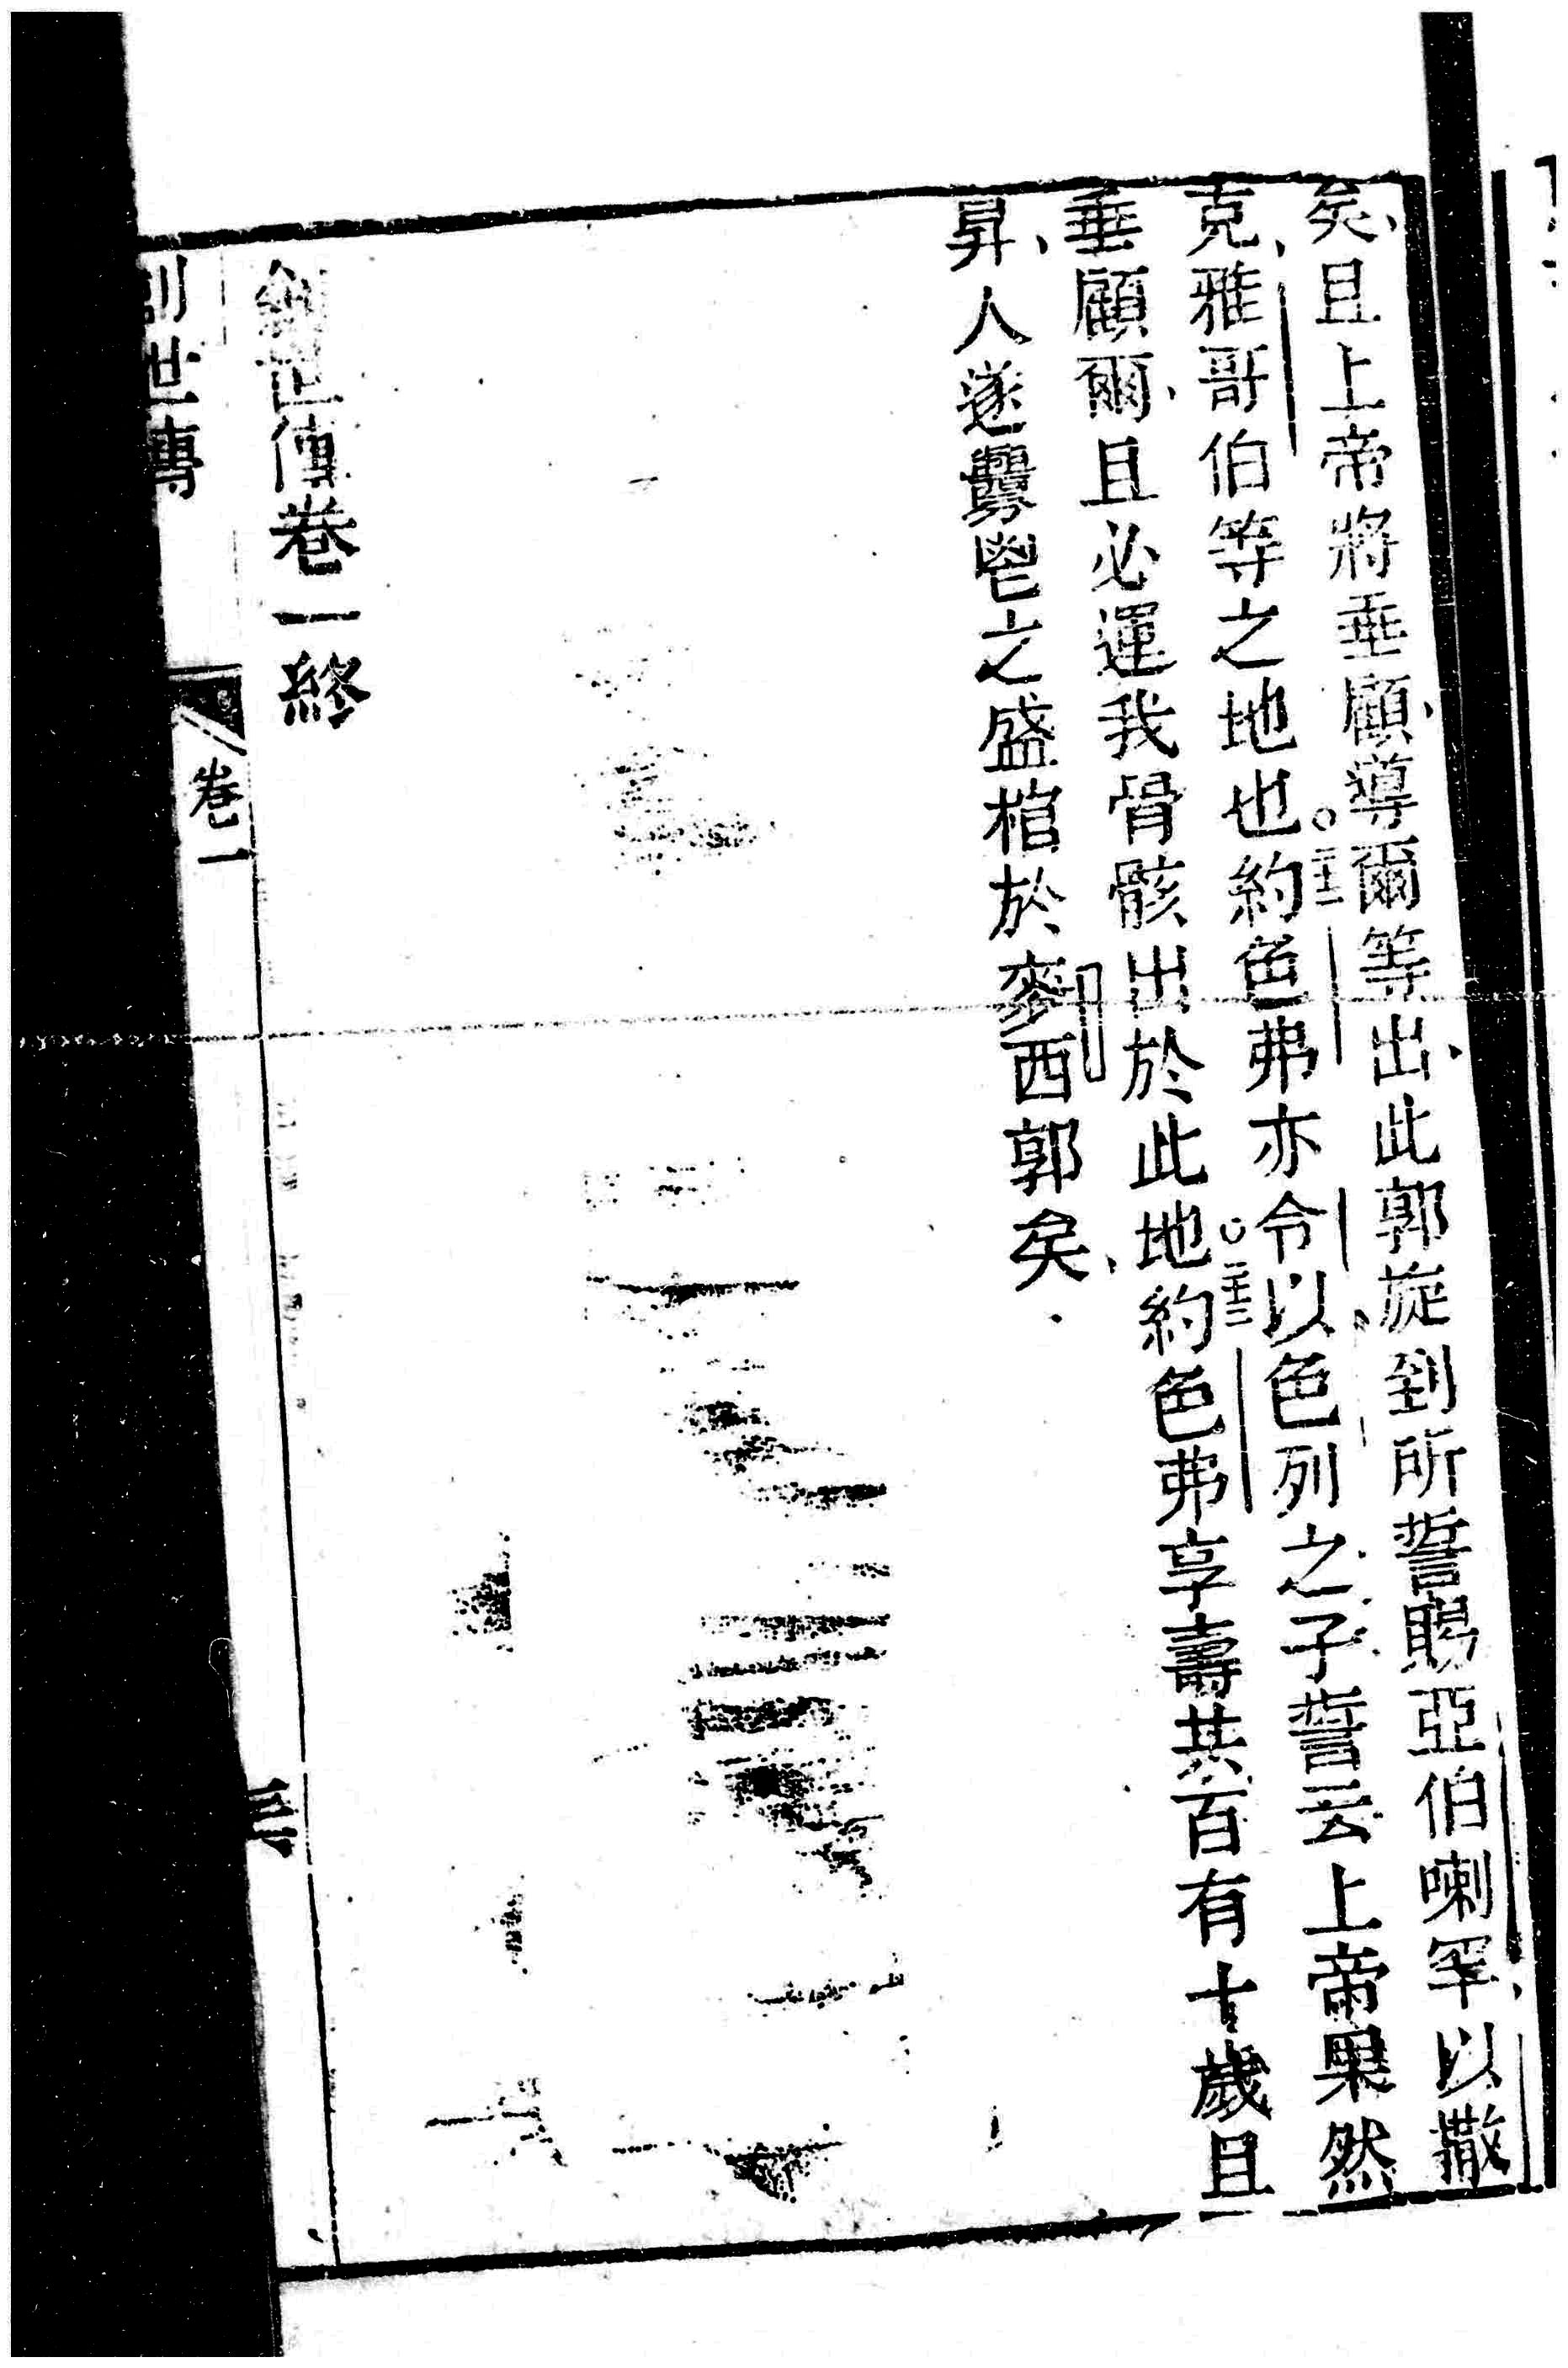 矣、且上帝將垂顧、導爾等、出此郭旋到所誓賜亞伯喇罕、以撒
克、雅哥伯等之地也。二十五約色弗亦令以色列之子誓云上帝果然
垂顧爾、且必運我骨骸出於此地。二十六約色弗享壽共百有十歲且
昇、人遂釁鬯之盛棺於麥西郭矣、
創世傳卷一終
創世傳
卷一